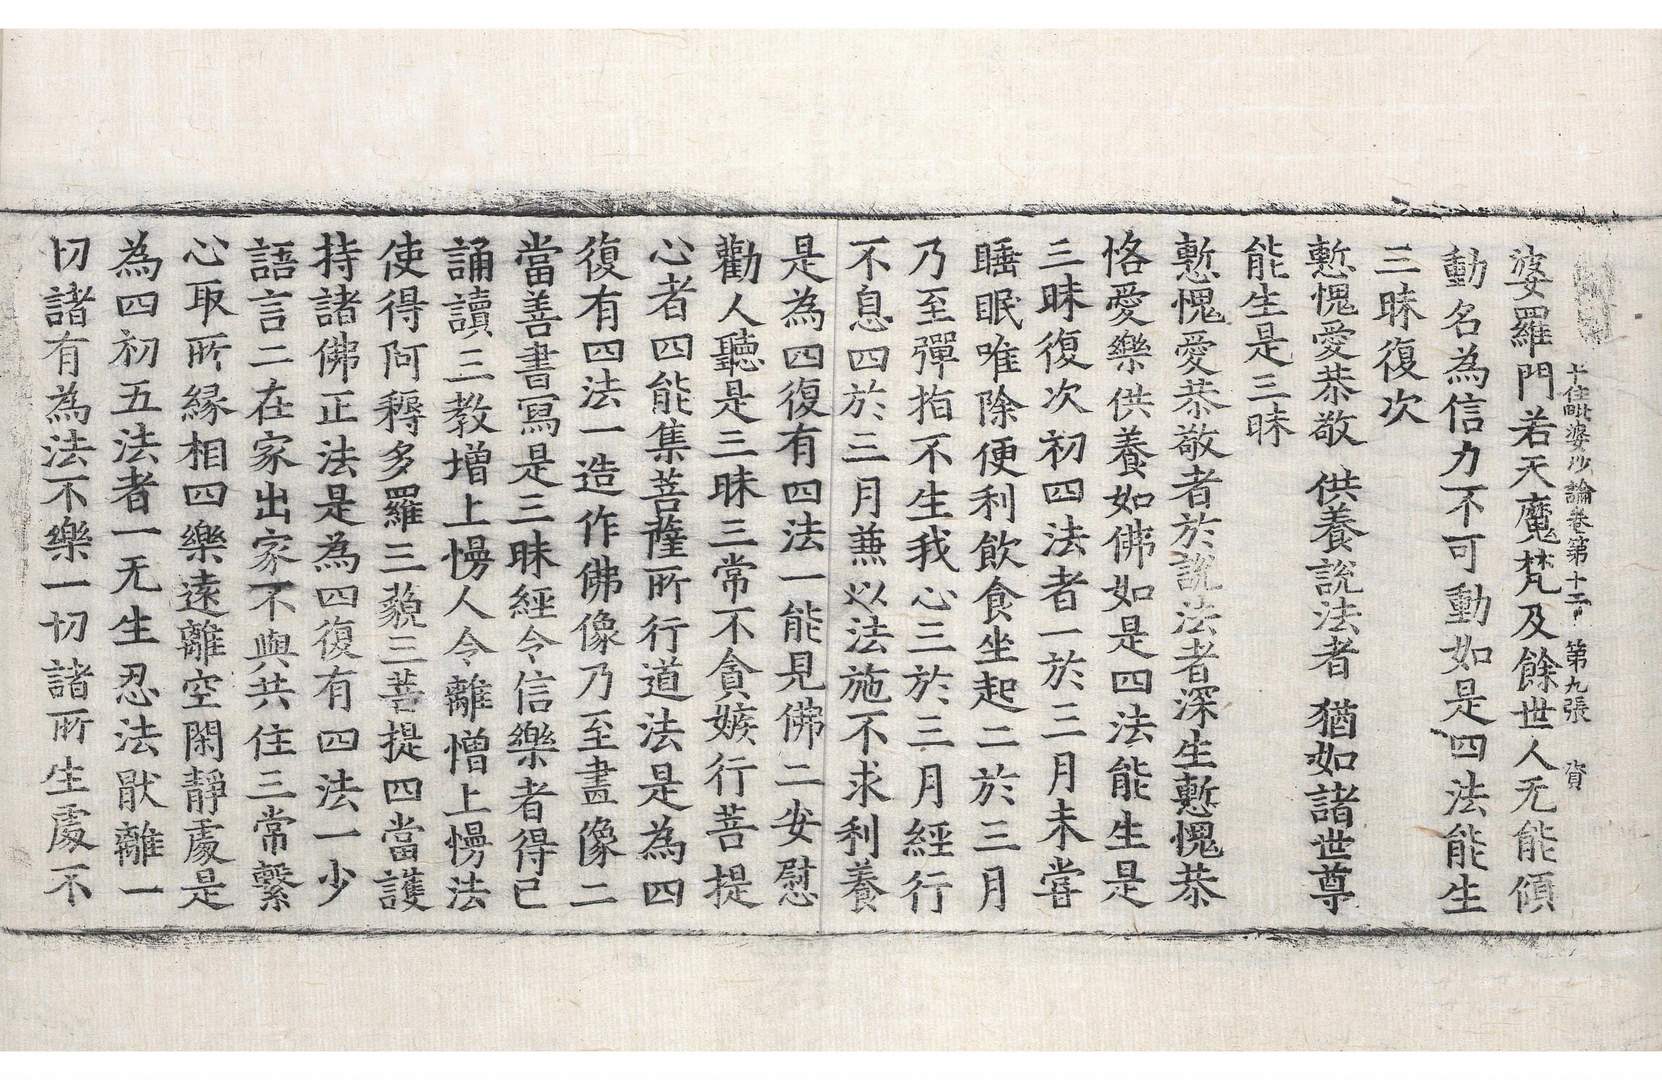 十住毗婆沙論卷第十二 第九張 資
婆羅門若天魔梵及餘世人无能傾
動名為信力不可動如是四法能生
三昧復次
慙愧愛恭敬 供養說法者 猶如諸世尊
能生是三昧
慙愧愛恭敬者於說法者深生慙愧恭
恪愛樂供養如佛如是四法能生是
三昧復次初四法者一於三月未嘗
睡眠唯除便利飲食坐起二於三月
乃至彈指不生我心三於三月經行
不息四於三月兼以法施不求利養
是為四復有四法一能見佛二安慰
勸人聽是三昧三常不貪嫉行菩提
心者四能集菩薩所行道法是為四
復有四法一造作佛像乃至畫像二
當善書寫是三昧經令信樂者得已
誦讀三教增上慢人令離憎上慢法
使得阿耨多羅三藐三菩提四當護
持諸佛正法是為四復有四法一少
語言二在家出家不與共住三常繫
心取所緣相四樂遠離空閑靜處是
為四初五法者一无生忍法猒離一
切諸有為法不樂一切諸所生處不